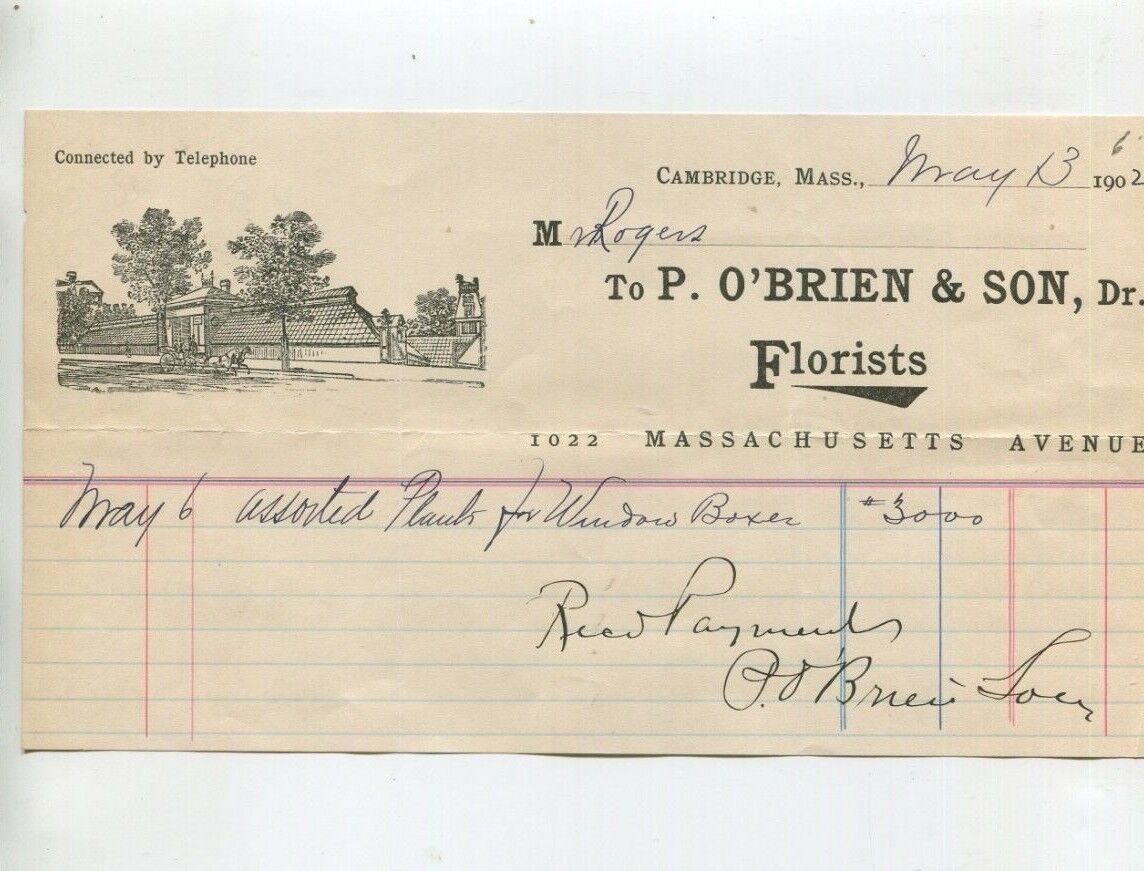 Connected by Telephone
CAMBRIDGE, MASS., May 13 1902
6
Mr Rogers
To P. O'BRIEN & SON, Dr.
Florists
1022 MASSACHUSETTS AVENUE
May 6 assorted Plants for Window Boxes $30 00
Recd Payments
P. O'Brien Son